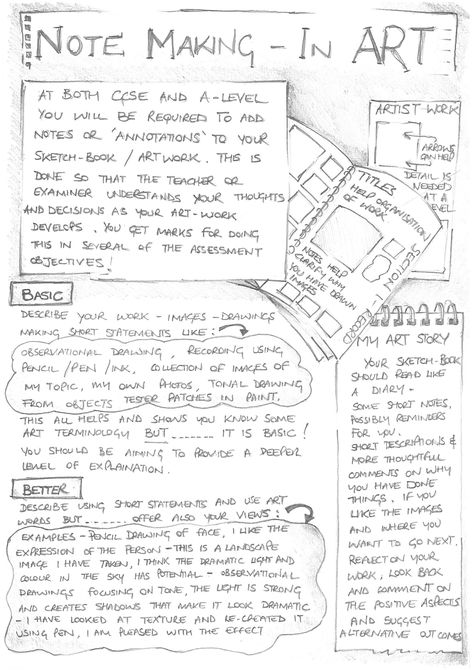 NOTE MAKING - IN ART
AT BOTH GCSE AND A-LEVEL
YOU WILL BE REQUIRED TO ADD
NOTES OR 'ANNOTATIONS' TO YOUR
SKETCH-BOOK / ARTWORK. THIS IS
DONE SO THAT THE TEACHER OR
EXAMINER UNDERSTANDS YOUR THOUGHTS
AND DECISIONS AS YOUR ART-WORK
DEVELOPS. YOU GET MARKS FOR DOING
THIS IN SEVERAL OF THE ASSESSMENT
OBJECTIVES!
ARTIST WORK
ARROWS
CAN HELP
DETAIL IS
NEEDED
AT A
LEVEL
TITLES
HELP ORGANISATION
OF WORK
NOTES HELP
CLARIFY WHY
YOU HAVE DRAWN
IMAGES
SECTION
BASIC
DESCRIBE YOUR WORK - IMAGES - DRAWINGS
MAKING SHORT STATEMENTS LIKE:
OBSERVATIONAL DRAWING, RECORDING USING
PENCIL/PEN/INK, COLLECTION OF IMAGES OF
MY TOPIC, MY OWN PHOTOS, TONAL DRAWING
FROM OBJECTS TESTER PATCHES IN PAINT.
THIS ALL HELPS AND SHOWS YOU KNOW SOME
ART TERMINOLOGY BUT ...... IT IS BASIC!
YOU SHOULD BE AIMING TO PROVIDE A DEEPER
LEVEL OF EXPLAINATION.
BETTER
DESCRIBE USING SHORT STATEMENTS AND USE ART
WORDS BUT ...... OFFER ALSO YOUR VIEWS:
EXAMPLES - PENCIL DRAWING OF FACE, I LIKE THE
EXPRESSION OF THE PERSON - THIS IS A LANDSCAPE
IMAGE I HAVE TAKEN, I THINK THE DRAMATIC LIGHT AND
COLOUR IN THE SKY HAS POTENTIAL - OBSERVATIONAL
DRAWINGS FOCUSING ON TONE, THE LIGHT IS STRONG
AND CREATES SHADOWS THAT MAKE IT LOOK DRAMATIC
- I HAVE LOOKED AT TEXTURE AND RE-CREATED IT
USING PEN, I AM PLEASED WITH THE EFFECT
MY ART STORY
YOUR SKETCH-BOOK
SHOULD READ LIKE
A DIARY -
SOME SHORT NOTES,
POSSIBLY REMINDERS
FOR YOU.
SHORT DESCRIPTIONS &
MORE THOUGHTFUL
COMMENTS ON WHY
YOU HAVE DONE
THINGS. IF YOU
LIKE THE IMAGES
AND WHERE YOU
WANT TO GO NEXT.
REFLECT ON YOUR
WORK, LOOK BACK
AND COMMENT ON
THE POSITIVE ASPECTS
AND SUGGEST
ALTERNATIVE OUTCOMES